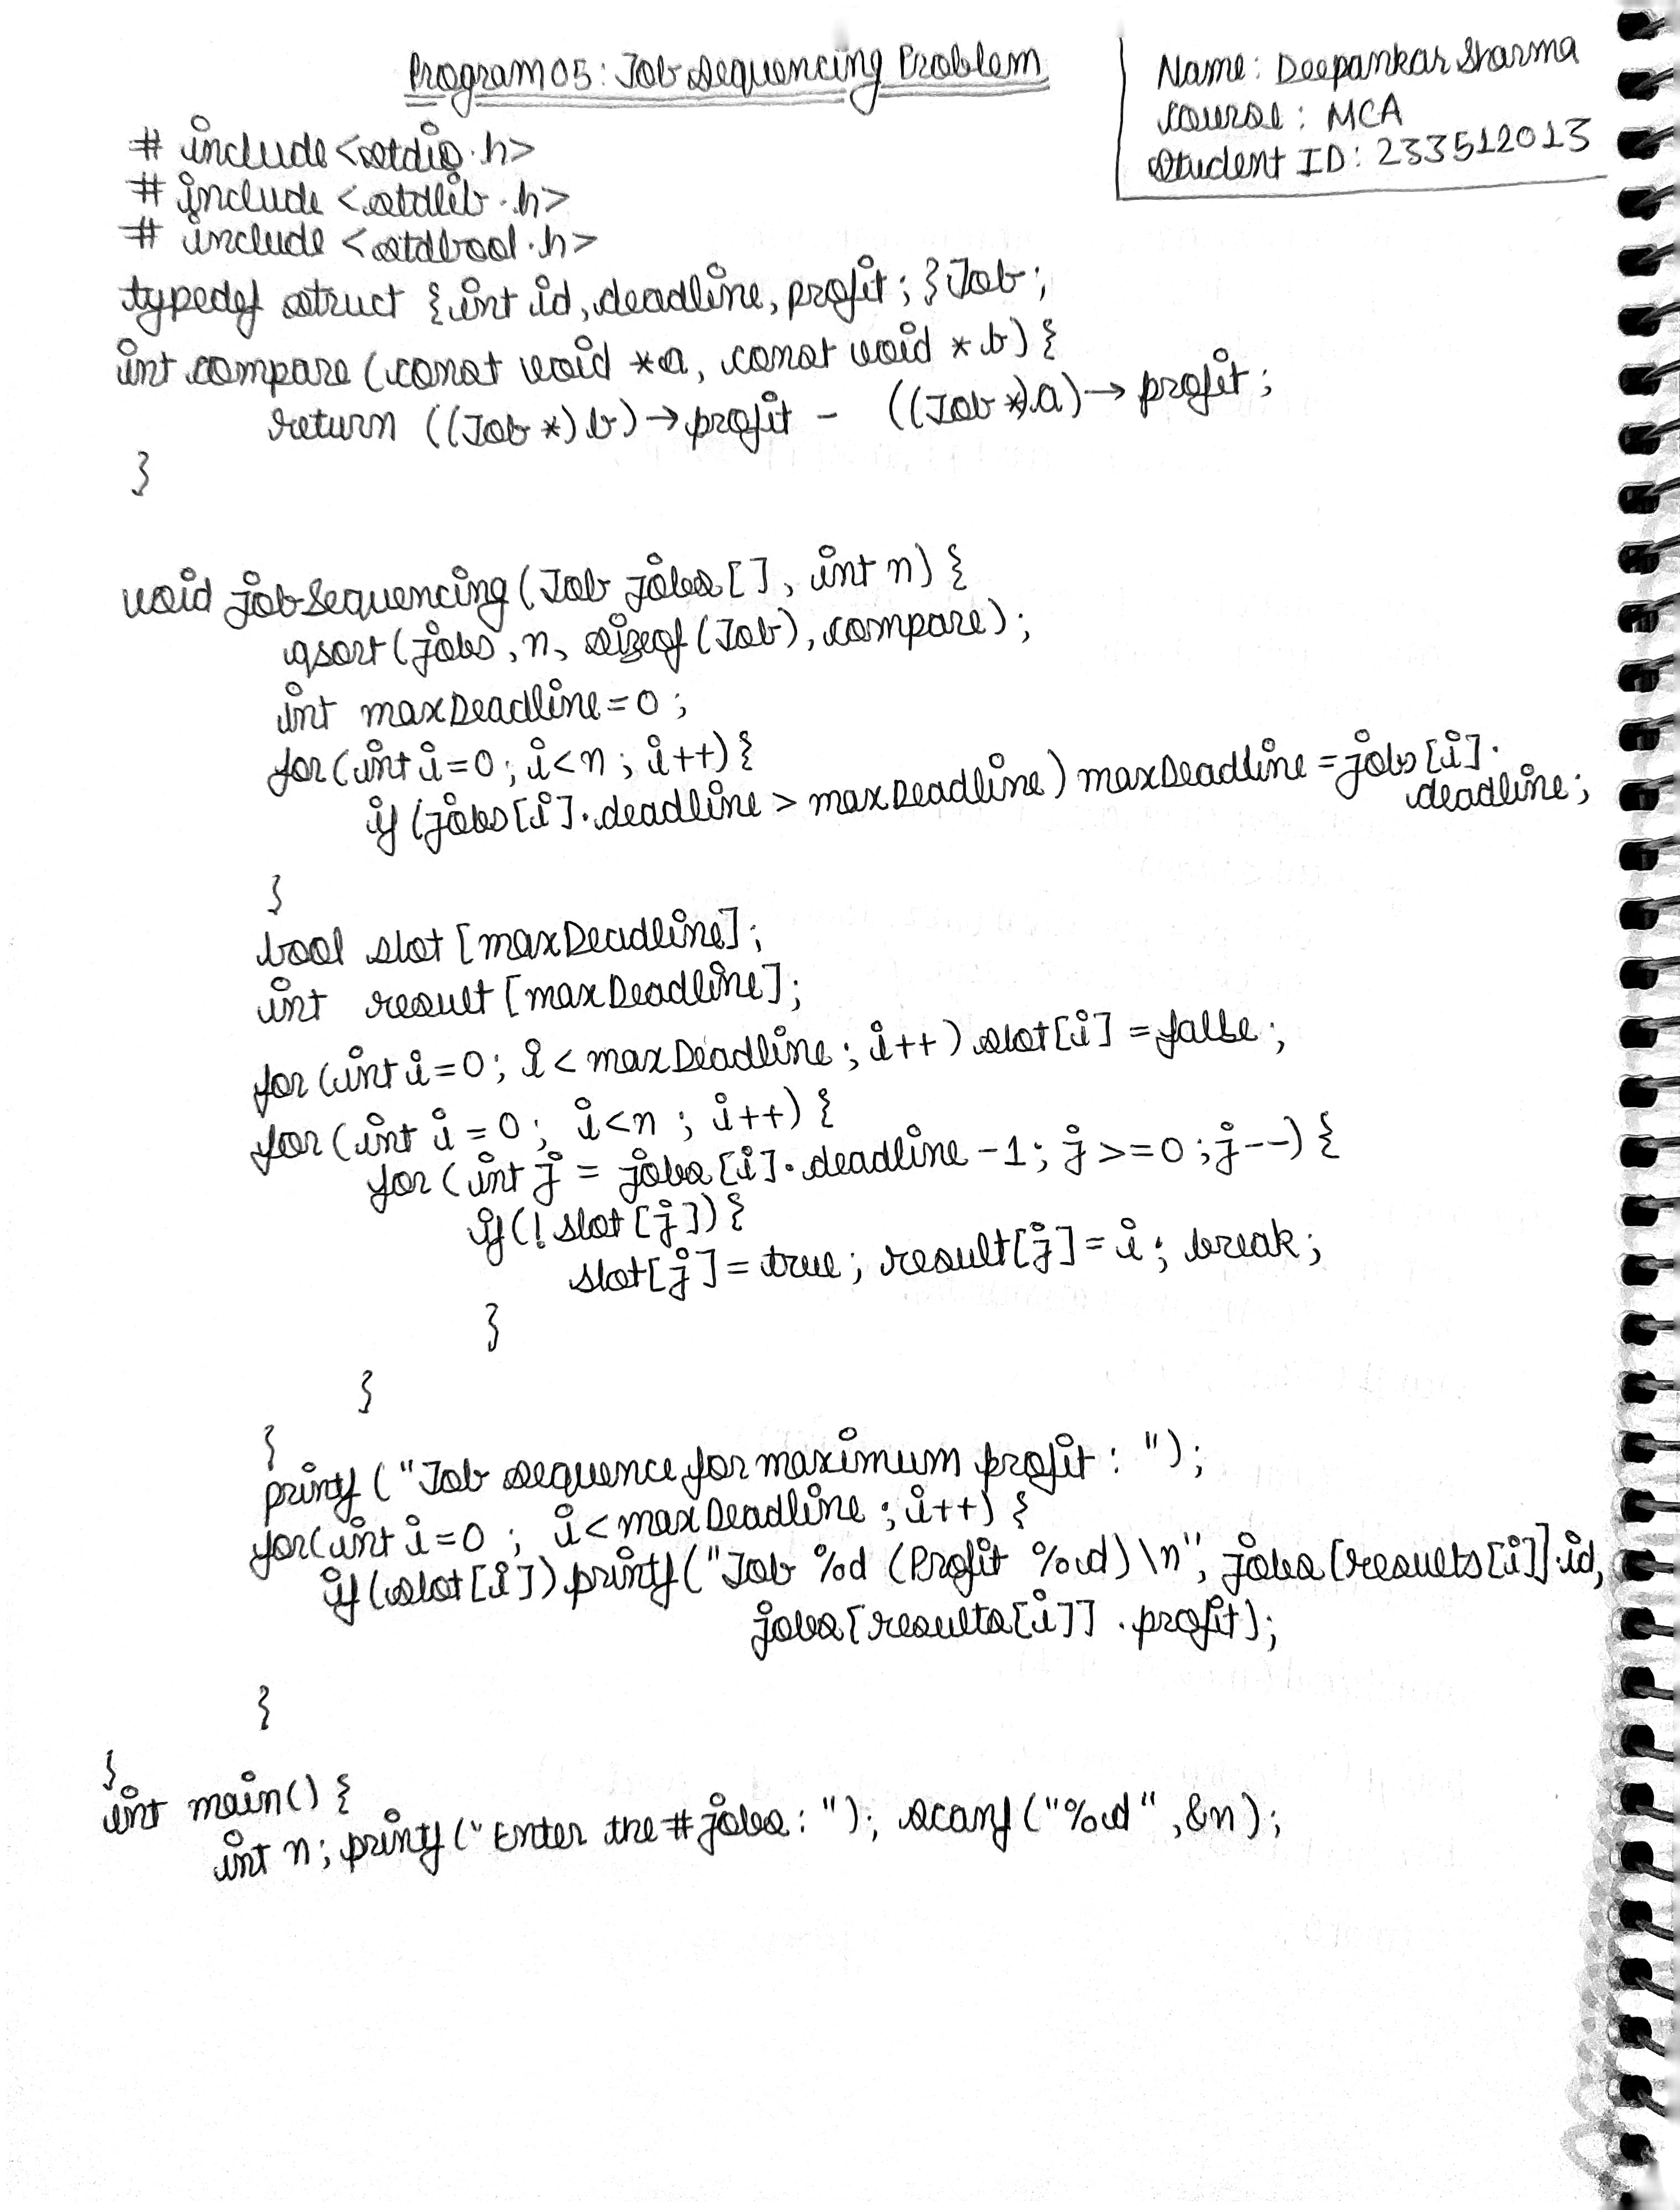 Program 05: Job Sequencing Problem
Name: Deepankar Sharma
Course: MCA
Student ID: 233512013
# include <stdio.h>
# include <stdlib.h>
# include <stdbool.h>
typedef struct {int id, deadline, profit; } Job;
int compare (const void *a, const void *b) {
return ((Job *) b) → profit - ((Job *) a) → profit;
}
void jobSequencing (Job jobs [], int n) {
qsort (jobs, n, sizeof (Job), compare);
int maxDeadline = 0;
for (int i=0; i<n; i++) {
if (jobs[i].deadline > maxDeadline) maxDeadline = jobs[i].
deadline;
}
bool slot [maxDeadline];
int result [maxDeadline];
for (int i=0; i < maxDeadline; i++) slot[i] = false;
for (int i = 0; i<n; i++) {
for (int j = jobs [i].deadline -1; j >= 0; j--) {
if (! slot [j]) {
slot[j] = true; result[j] = i; break;
}
}
}
printf ("Job sequence for maximum profit: ");
for (int i=0; i< maxDeadline; i++) {
if (slot [i]) printf ("Job %d (Profit %d) \n", jobs [results[i]].id,
jobs [results[i]] .profit);
}
}
int main() {
int n; printf ("Enter the # jobs: "); scanf ("%d", &n);